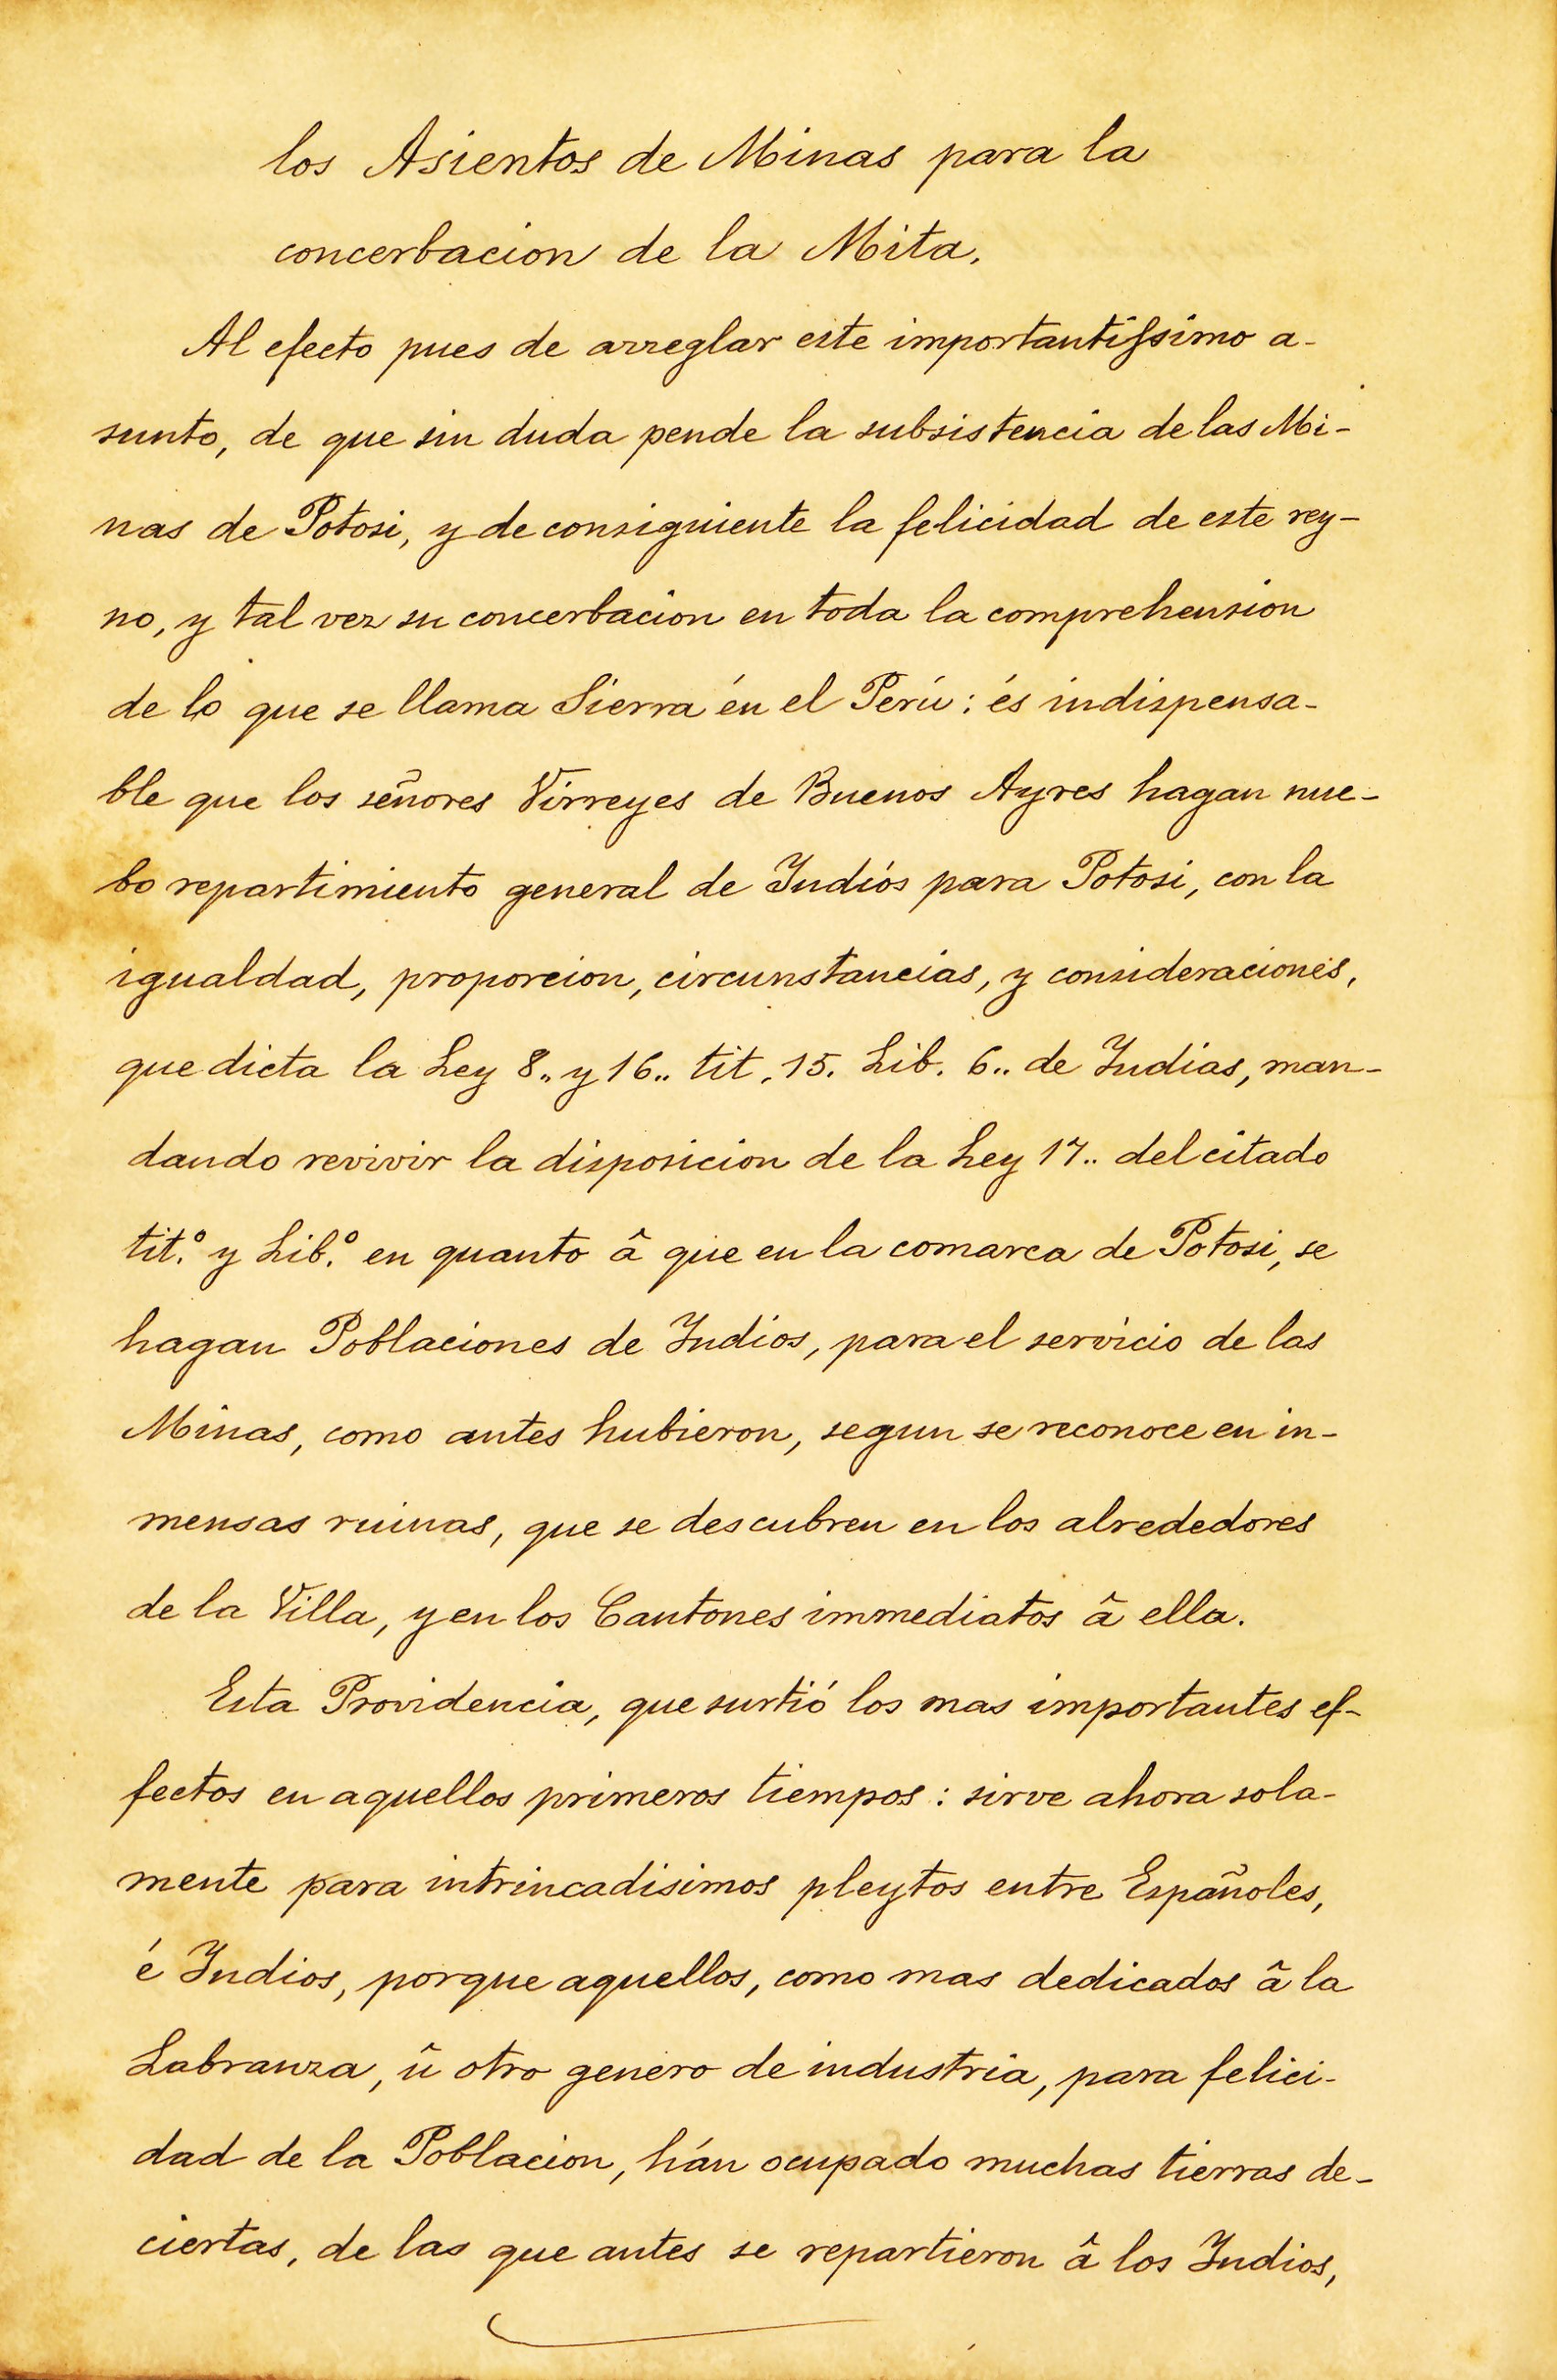 los Asientos de Minas para la
concerbacion de la Mita.
Al efecto pues de arreglar este importantissimo a-
sunto, de que sin duda pende la subsistencia de las Mi-
nas de Potosi, y de consiguiente la felicidad de este rey-
no, y tal vez su concerbacion en toda la comprehension
de lo que se llama Sierra én el Perú: és indispensa-
ble que los señores Virreyes de Buenos Ayres hagan nue-
bo repartimiento general de Indiós para Potosi, con la
igualdad, proporcion, circunstancias, y consideraciones,
que dicta la Ley 8.. y 16.. tit. 15. Lib. 6.. de Indias, man-
dando revivir la disposicion de la Ley 17.. del citado
tit.º y Lib.º en quanto â que en la comarca de Potosi, se
hagan Poblaciones de Indios, para el servicio de las
Minas, como antes hubieron, segun se reconoce en in-
mensas ruinas, que se descubren en los alrededores
de la Villa, y en los Cantones immediatos â ella.
Esta Providencia, que surtió los mas importantes ef-
fectos en aquellos primeros tiempos: sirve ahora sola-
mente para intrincadisimos pleytos entre Españoles,
é Indios, porque aquellos, como mas dedicados â la
Labranza, û otro genero de industria, para felici-
dad de la Poblacion, hán ocupado muchas tierras de-
ciertas, de las que antes se repartieron â los Indios,